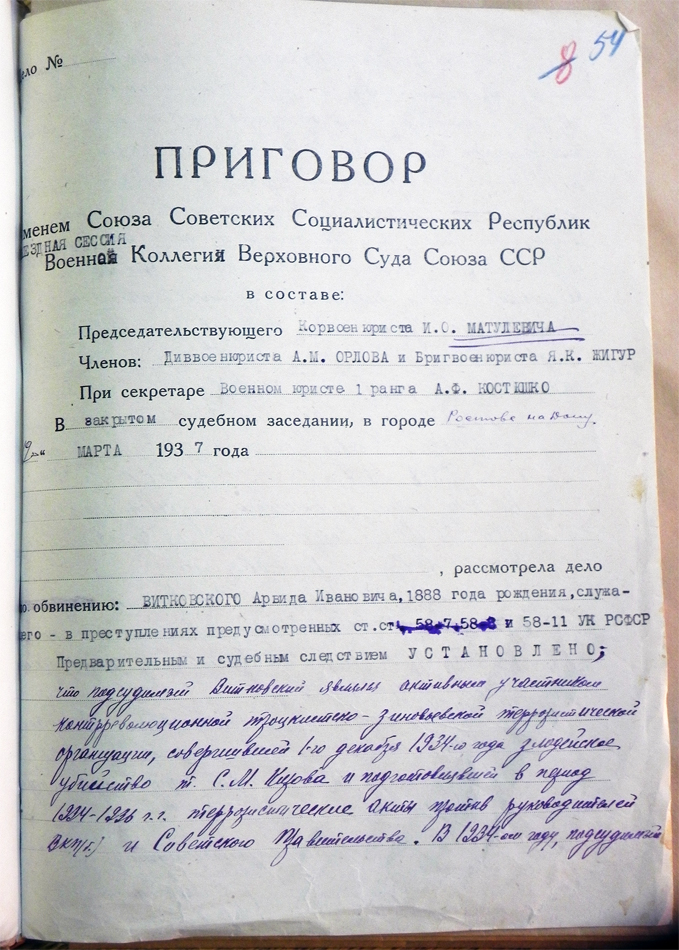 8 54
ело №
ПРИГОВОР
менем Союза Советских Социалистических Республик
ЕЗДНАЯ СЕССИЯ
Военной Коллегия Верховного Суда Союза ССР
в составе:
Председательствующего Корвоенюриста И.О. МАТУЛЕВИЧА
Членов: Диввоенюриста А.М. ОРЛОВА и Бригвоенюриста Я.К. ЖИГУР
При секретаре Военном юристе 1 ранга А.Ф. КОСТЮШКО
В закрытом судебном заседании, в городе Ростове на Дону.
" МАРТА 1937 года
, рассмотрела дело
о обвинению: ВИТКОВСКОГО Арвида Ивановича, 1888 года рождения, служа-
его - в преступлениях предусмотренных ст.ст. 58-7, 58-8 и 58-11 УК РСФСР
Предварительным и судебным следствием УСТАНОВЛЕНО;
что подсудимый Витковский являлся активным участником
контрреволюционной троцкистско-зиновьевской террористической
организации, совершившей 1-го декабря 1934-го года злодейское
убийство т. С.М. Кирова и подготовлявшей в период
1934-1936 г.г. террористические акты против руководителей
ВКП(б) и Советского Правительства. В 1934-ом году, подсудимый